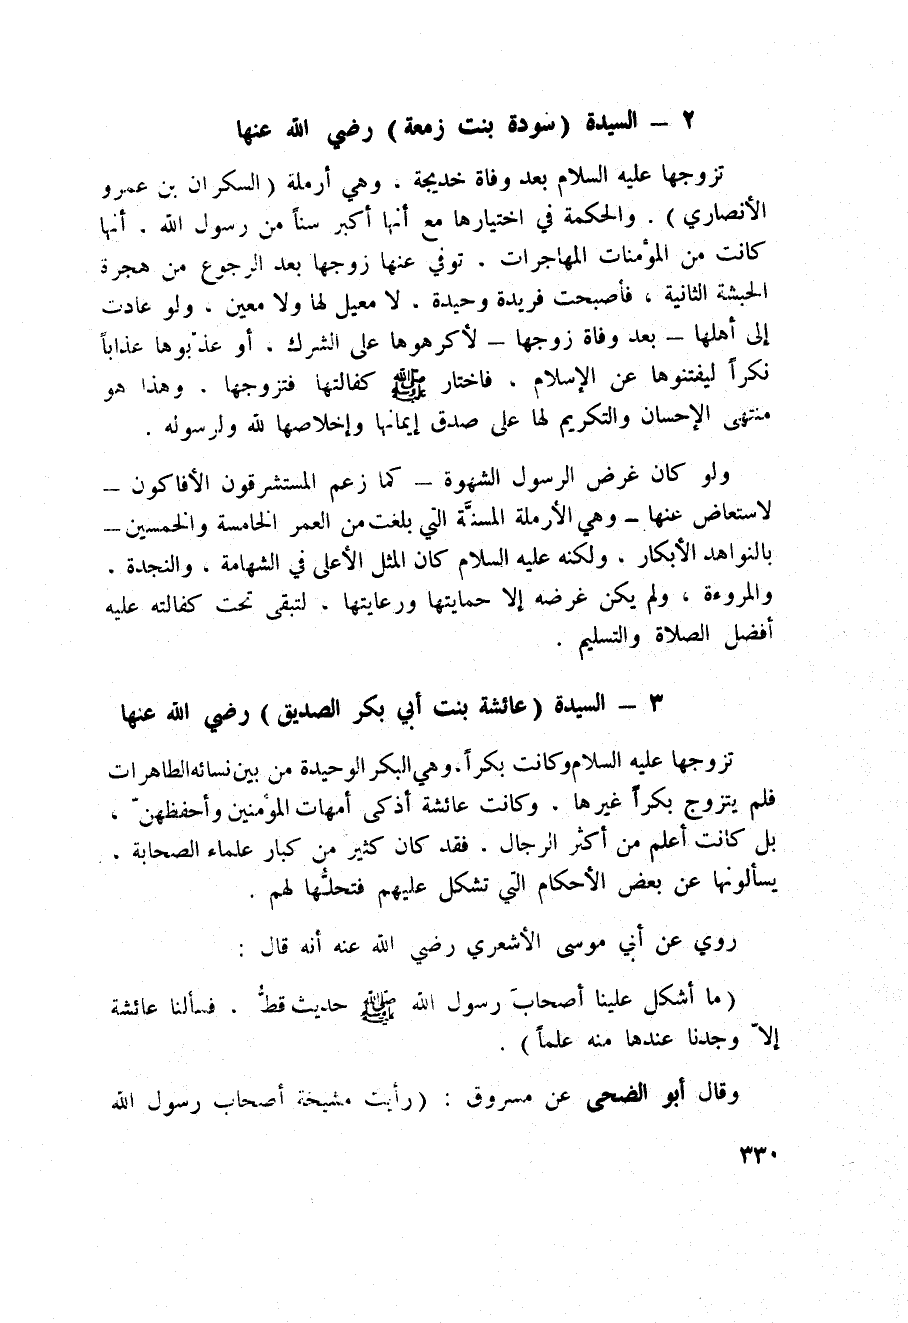 ٢ – السيدة (سودة بنت زمعة) رضي الله عنها
تزوجها عليه السلام بعد وفاة خديجة . وهي أرملة (السكران بن عمرو
الأنصاري) . والحكمة في اختيارها مع أنها أكبر سناً من رسول الله . أنها
كانت من المؤمنات المهاجرات . توفي عنها زوجها بعد الرجوع من هجرة
الحبشة الثانية ، فأصبحت فريدة وحيدة . لا معيل لها ولا معين . ولو عادت
إلى أهلها – بعد وفاة زوجها – لأكرهوها على الشرك . أو عذّبوها عذاباً
نكراً ليفتنوها عن الإسلام . فاختار ﷺ كفالتها فتزوجها . وهذا هو
منتهى الإحسان والتكريم لها على صدق إيمانها وإخلاصها لله ولرسوله .
ولو كان غرض الرسول الشهوة – كما زعم المستشرقون الأفاكون –
لاستعاض عنها – وهي الأرملة المسنَّة التي بلغت من العمر الخامسة والخمسين –
بالنواهد الأبكار . ولكنه عليه السلام كان المثل الأعلى في الشهامة . والنجدة .
والمروءة ، ولم يكن غرضه إلا حمايتها ورعايتها . لتبقى تحت كفالته عليه
أفضل الصلاة والتسليم .
٣ – السيدة (عائشة بنت أبي بكر الصديق) رضي الله عنها
تزوجها عليه السلام وكانت بكراً . وهي البكر الوحيدة من بين نسائه الطاهرات
فلم يتزوج بكراً غيرها . وكانت عائشة أذكى أمهات المؤمنين وأحفظهنّ ،
بل كانت أعلم من أكثر الرجال . فقد كان كثير من كبار علماء الصحابة .
يسألونها عن بعض الأحكام التي تشكل عليهم فتحلُّها لهم .
روي عن أبي موسى الأشعري رضي الله عنه أنه قال :
(ما أشكل علينا أصحابَ رسول الله ﷺ حديث قطُّ . فسألنا عائشة
إلاّ وجدنا عندها منه علماً) .
وقال أبو الضحى عن مسروق : (رأيت مشيخة أصحاب رسول الله
٣٣٠